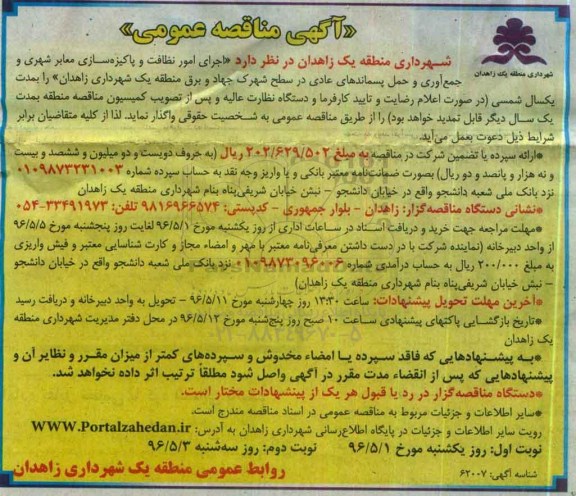 «آگهی مناقصه عمومی»
شهرداری منطقه یک زاهدان
شـهرداری منطقه یک زاهدان در نظر دارد «اجرای امور نظافت و پاکیزه‌سازی معابر شهری و
جمع‌آوری و حمل پسماندهای عادی در سطح شهرک جهاد و برق منطقه یک شهرداری زاهدان» را بمدت
یکسال شمسی (در صورت اعلام رضایت و تایید کارفرما و دستگاه نظارت عالیه و پس از تصویب کمیسیون مناقصه منطقه بمدت
یک سـال دیگر قابل تمدید خواهد بود) را از طریق مناقصه عمومی به شـخصیت حقوقی واگذار نماید. لذا از کلیه متقاضیان برابر
شرایط ذیل دعوت بعمل می‌آید.
*ارائه سپرده یا تضمین شرکت در مناقصه به مبلغ ۲۰۲/۶۲۹/۵۰۲ ریال (به حروف دویست و دو میلیون و ششصد و بیست
و نه هزار و پانصد و دو ریال) بصورت ضمانت‌نامه معتبر بانکی و یا واریز وجه نقد به حساب سپرده شماره ۰۱۰۹۸۷۳۲۳۱۰۰۳
نزد بانک ملی شعبه دانشجو واقع در خیابان دانشجو – نبش خیابان شریفی‌پناه بنام شهرداری منطقه یک زاهدان
*نشانی دستگاه مناقصه‌گزار: زاهدان – بلوار جمهوری – کدپستی: ۹۸۱۶۹۶۶۵۷۴ تلفن: ۳۳۴۹۱۹۷۳-۰۵۴
*مهلت مراجعه جهت خرید و دریافت اسـناد در ساعات اداری از روز یکشنبه مورخ ۹۶/۵/۱ لغایت روز پنجشنبه مورخ ۹۶/۵/۵
از واحد دبیرخانه (نماینده شرکت با در دست داشتن معرفی‌نامه معتبر با مهر و امضاء مجاز و کارت شناسایی معتبر و فیش واریزی
به مبلغ ۲۰۰/۰۰۰ ریال به حساب درآمدی شماره ۰۱۰۹۸۷۳۰۹۶۰۰۶ نزد بانک ملی شعبه دانشجو واقع در خیابان دانشجو
– نبش خیابان شریفی‌پناه بنام شهرداری منطقه یک زاهدان)
*آخرین مهلت تحویل پیشنهادات: ساعت ۱۳:۳۰ روز چهارشنبه مورخ ۹۶/۵/۱۱ – تحویل به واحد دبیرخانه و دریافت رسید
*تاریخ بازگشـایی پاکتهای پیشنهادی ساعت ۱۰ صبح روز پنج‌شنبه مورخ ۹۶/۵/۱۲ در محل دفتر مدیریت شهرداری منطقه
یک زاهدان
*به پیشـنهادهایی که فاقد سـپرده یـا امضاء مخدوش و سـپرده‌های کمتر از میزان مقـرر و نظایر آن و
پیشنهادهایی که پس از انقضاء مدت مقرر در آگهی واصل شود مطلقاً ترتیب اثر داده نخواهد شد.
*دستگاه مناقصه‌گزار در رد یا قبول هر یک از پیشنهادات مختار است.
*سایر اطلاعات و جزئیات مربوط به مناقصه عمومی در اسناد مناقصه مندرج است.
رویت سایر اطلاعات و جزئیات در پایگاه اطلاع‌رسانی شهرداری زاهدان به آدرس: WWW.Portalzahedan.ir
نوبت اول: روز یکشنبه مورخ ۹۶/۵/۱ نوبت دوم: روز سه‌شنبه ۹۶/۵/۳
شناسه آگهی: ۶۲۰۰۷
روابط عمومی منطقه یک شهرداری زاهدان